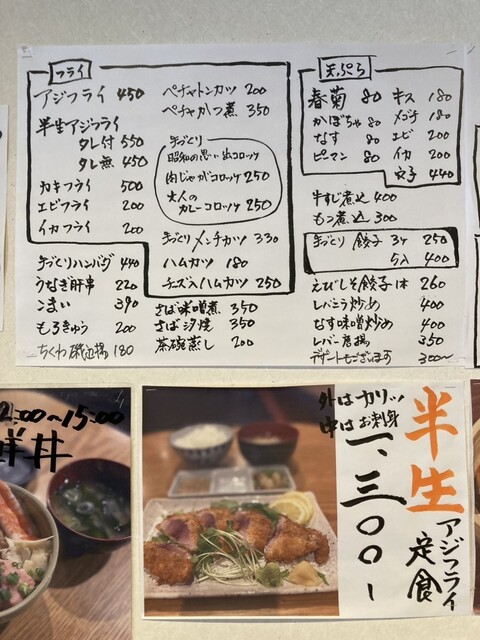 フライ
アジフライ 450
半生アジフライ
タレ付 550
タレ無 450
カキフライ 500
エビフライ 200
イカフライ 200
ペチャトンカツ 200
ペチャかつ煮 350
手づくり
昭和の思い出コロッケ
肉じゃがコロッケ 250
大人の
カレーコロッケ 250
手づくり メンチカツ 330
ハムカツ 180
チーズ入ハムカツ 250
手づくりハンバグ 440
うなぎ肝串 220
こまい 390
もろきゅう 200
ちくわ磯辺揚 180
さば味噌煮 350
さば汐焼 350
茶碗蒸し 200
天ぷら
春菊 80
かぼちゃ 80
なす 80
ピーマン 80
キス 180
メゴチ 180
エビ 200
イカ 200
穴子 440
牛すじ煮込 400
もつ煮込 300
手づくり 餃子 3ケ 250
5入 400
えびしそ餃子1本 260
レバニラ炒め 400
なす味噌炒め 400
レバー唐揚 350
デザートもございます 300〜
2:00〜15:00
丼
外はカリッ
中はお刺身
一、三〇〇ー
半生
アジフライ
定食